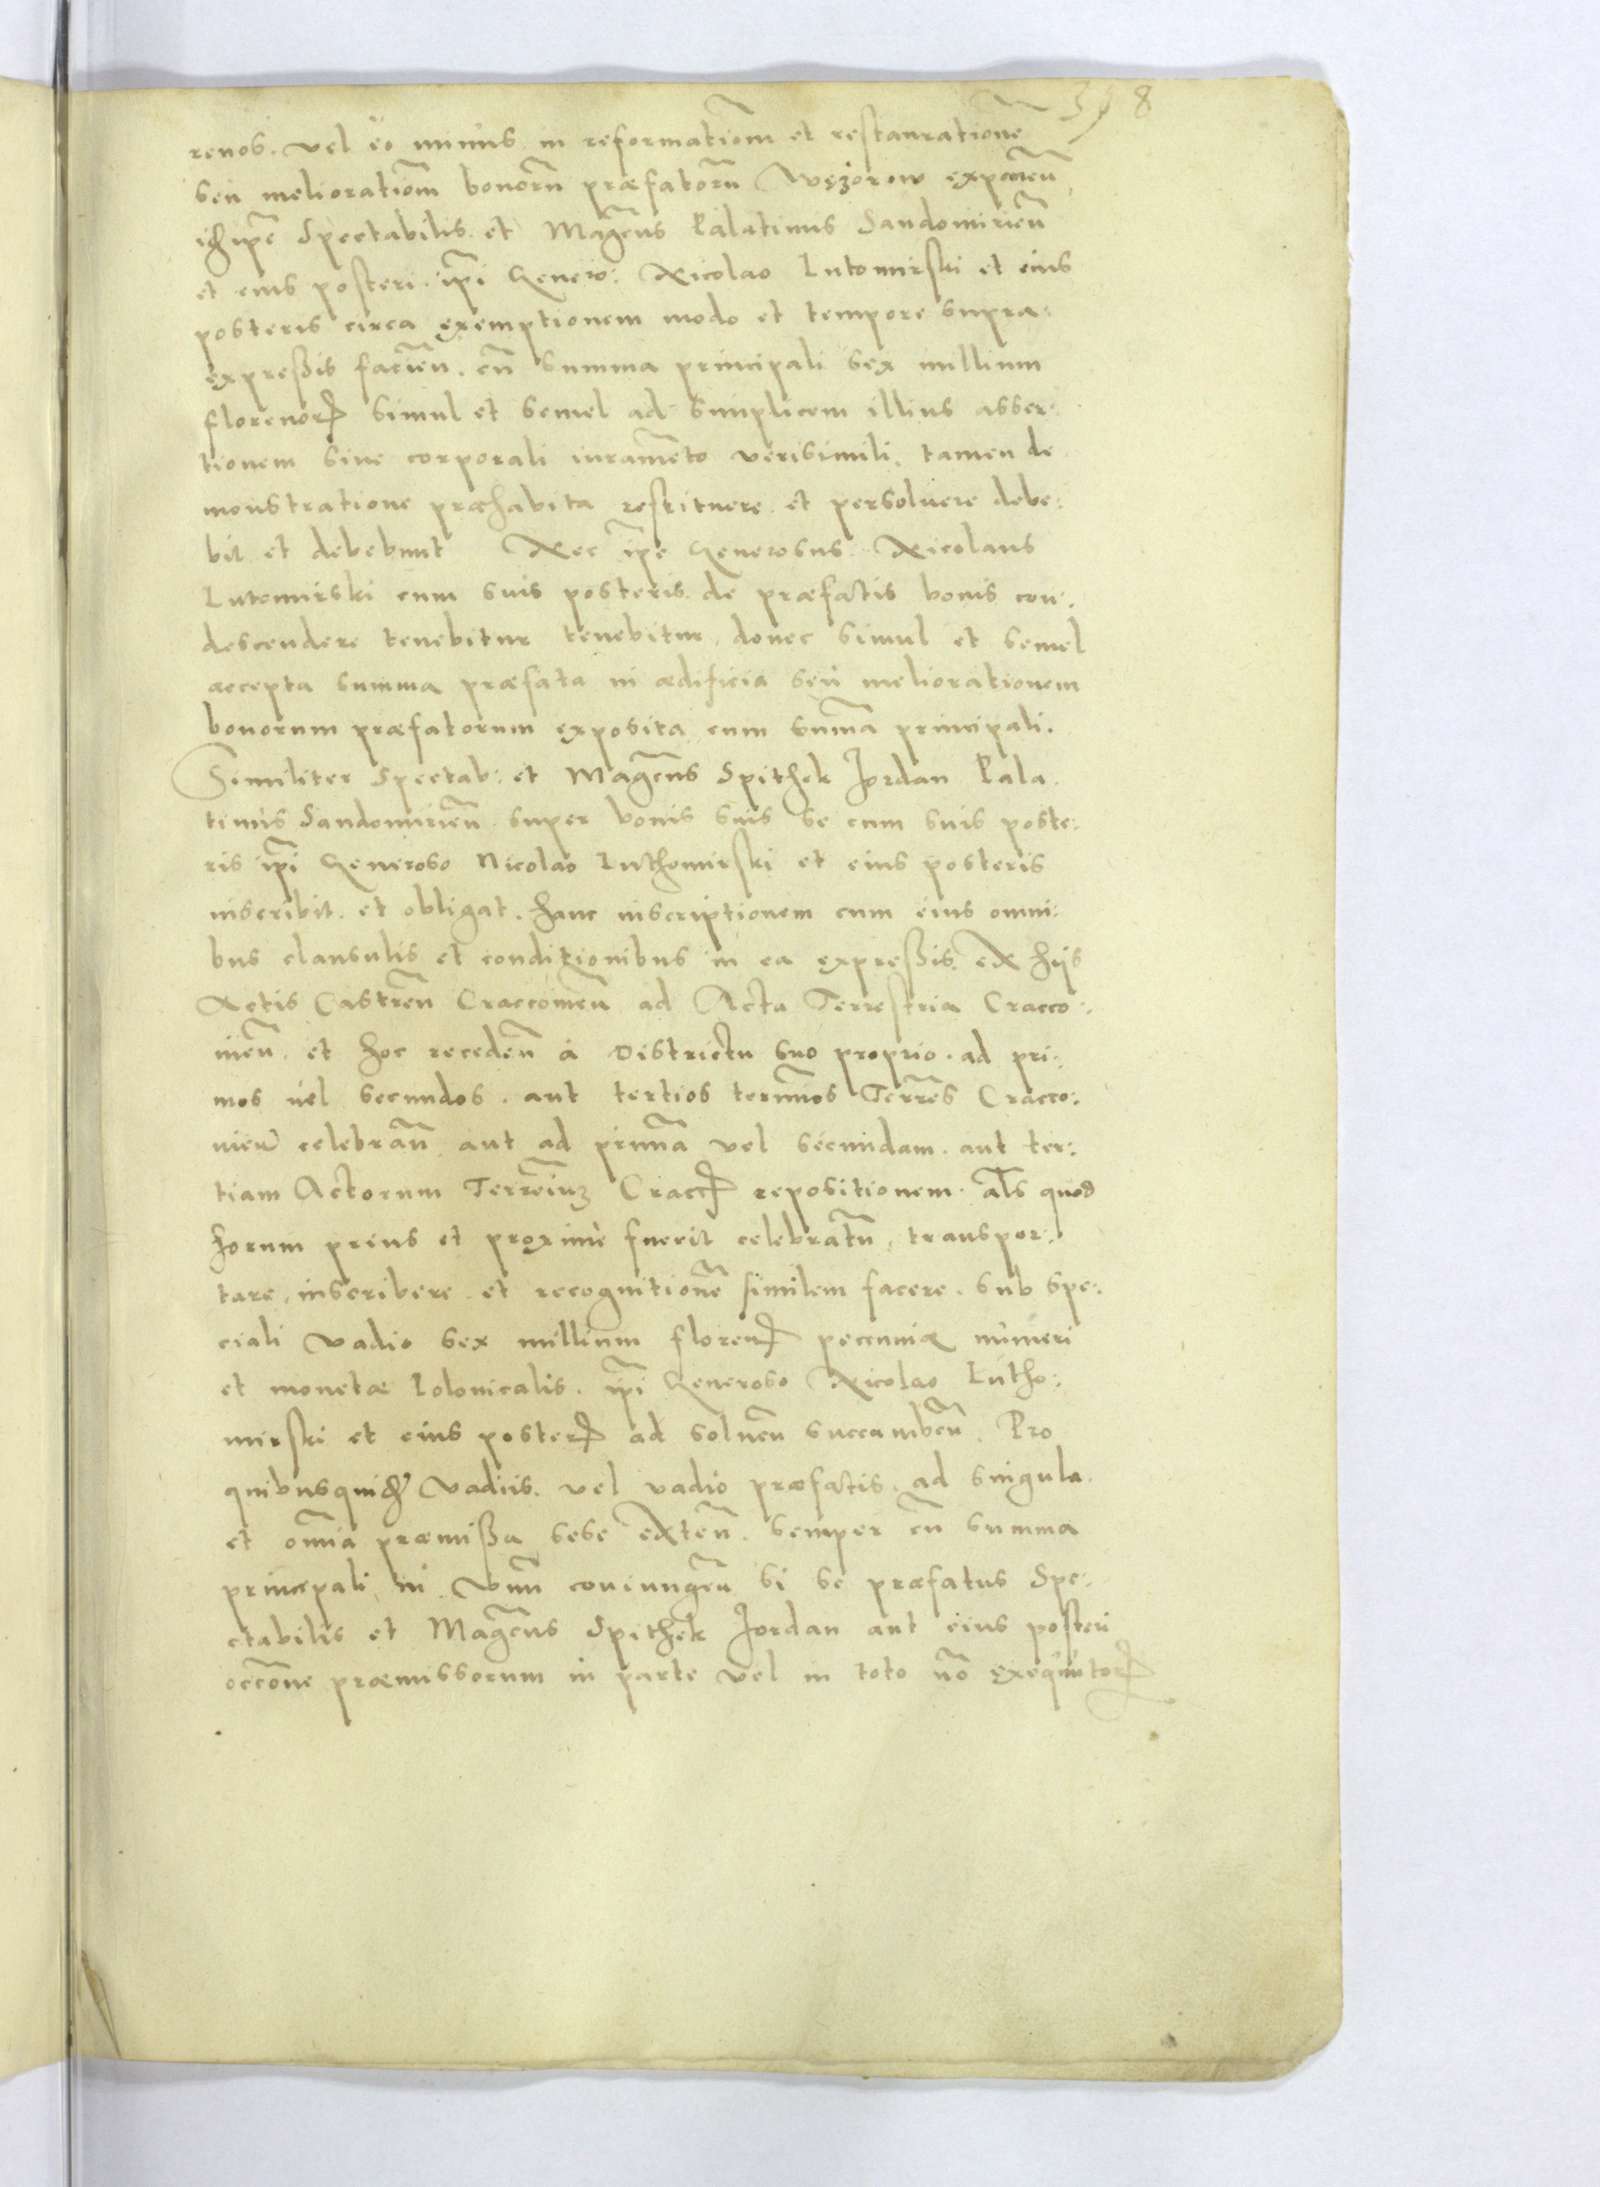 398
renos. vel eo minus in reformatiom et restauratione
seu melioratiom bonoru præfatoru Węzorow exponen
ipe Spectabilis et Magcus Palatinus Sandomirien
et eius posteri ipi Genero: Nicolao Lutomirski et eius
posteris circa exemptionem modo et tempore supra:
expreßis facien. cu summa principali sex millium
florenor simul et semel ad simplicem illius asser:
tionem sine corporali iuramento verisimili, tamen de
monstratione præhabita restituere et persoluere debe:
bit et debebunt Nec ipe Generosus Nicolaus
Lutomirski cum suis posteris de præfactis bonis con:
descendere tenebitur tenebitur, donec simul et semel
accepta summa præfata in ædificia seu meliorationem
bonorum præfatorum exposita cum suma principali.
Similiter Spectab: et Magcus Spithek Jordan Pala
tinus Sandomirien super bonis suis se cum suis poste:
ris ipi Generoso Nicolao Luthomirski et eius posteris
inscribit et obligat. hanc inscriptionem cum eius omni:
bus clausulis et conditionibus in ea expreßis ex hijs
Actis Castren Craccouien ad Acta Terrestria Cracco:
uien. et hoc receden à Districtu suo proprio. ad pri:
mos uel secundos. aut tertios terminos Terres Cracco:
uien celebran aut ad prima vel secundam. aut ter:
tiam Actorum Terreium Cracc repositionem. als quod
horum prius et proximè fuerit celebratu, transpor:
tare, inscribere et recognitione similem facere. sub spe:
ciali vadio sex millium floren pecuniæ numeri
et monetæ Polonicalis. ipi Generoso Nicolao Lutho:
mirski et eius poster ad soluen succumben. Pro
quibusquid vadiis. vel vadio præfactis. ad singula
et omia præmißa sese exten. semper cu summa
principali in vnu coniungen si se præfatus Spe:
ctabilis et Magcus Spithek Jordan aut eius posteri
occone præmissorum in parte vel in toto no exequutor